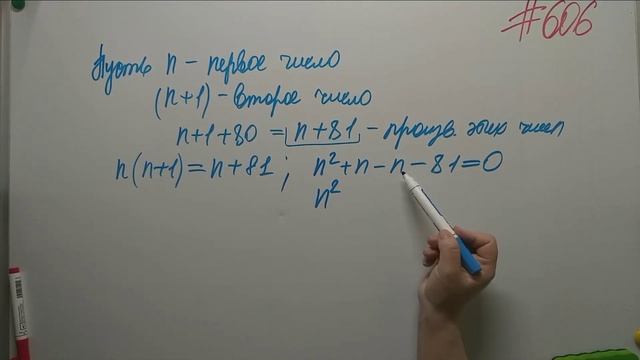 #606
Пусть n - первое число
(n+1) - второе число
n+1+80 = n+81 - произв. этих чисел
n(n+1)=n+81; n²+n-n-81=0
n²